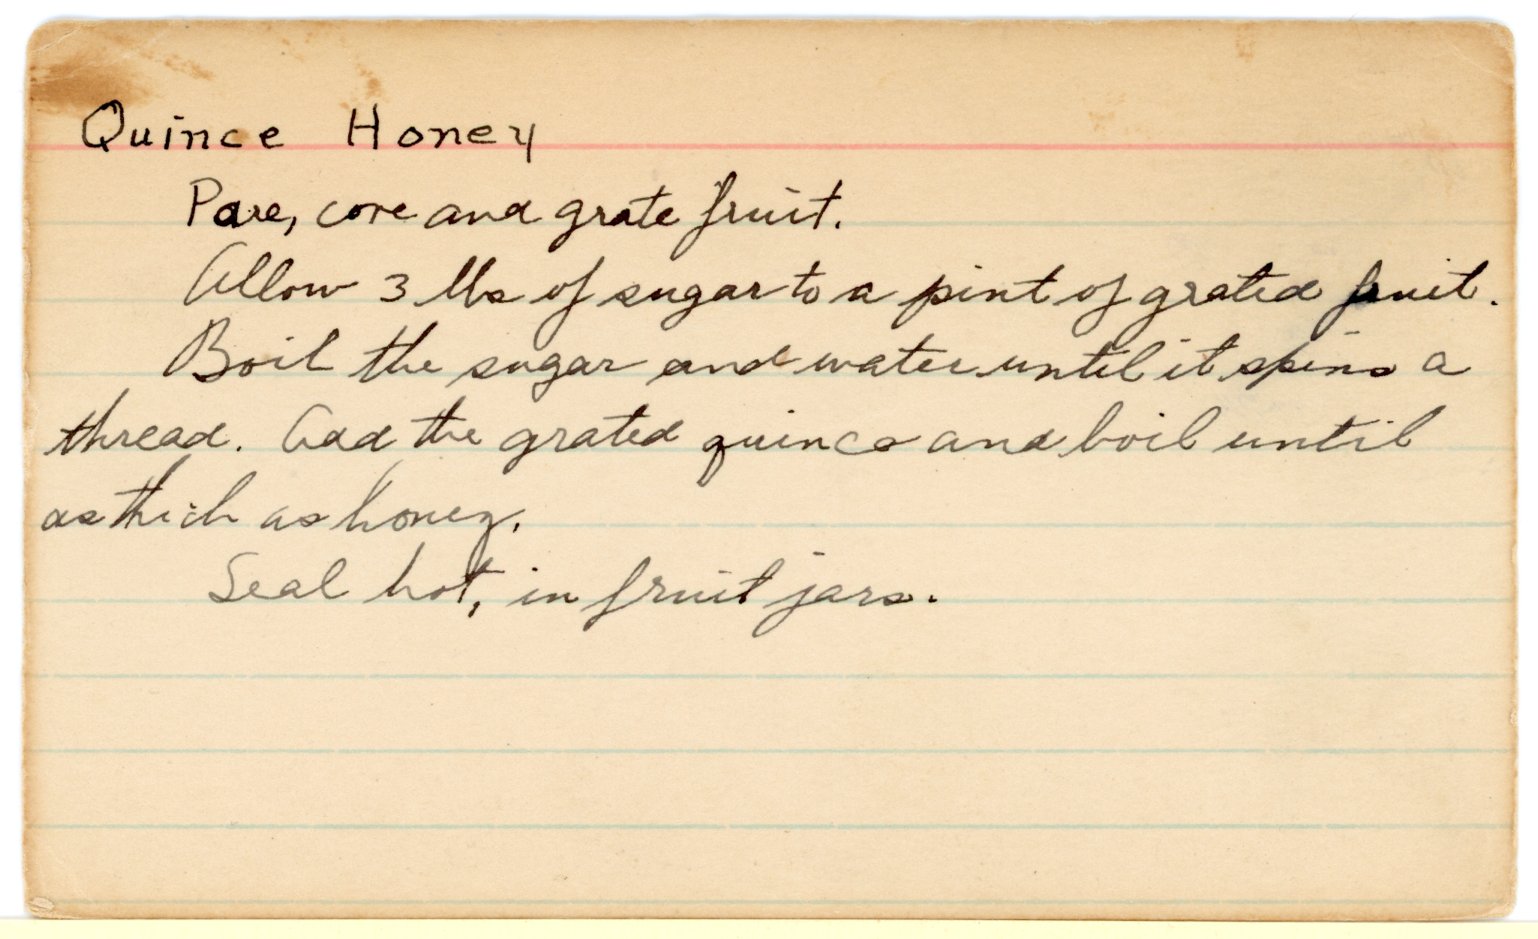 Quince Honey
Pare, core and grate fruit.
Allow 3 lbs of sugar to a pint of grated fruit.
Boil the sugar and water until it spins a
thread. Add the grated quince and boil until
as thick as honey.
Seal hot, in fruit jars.